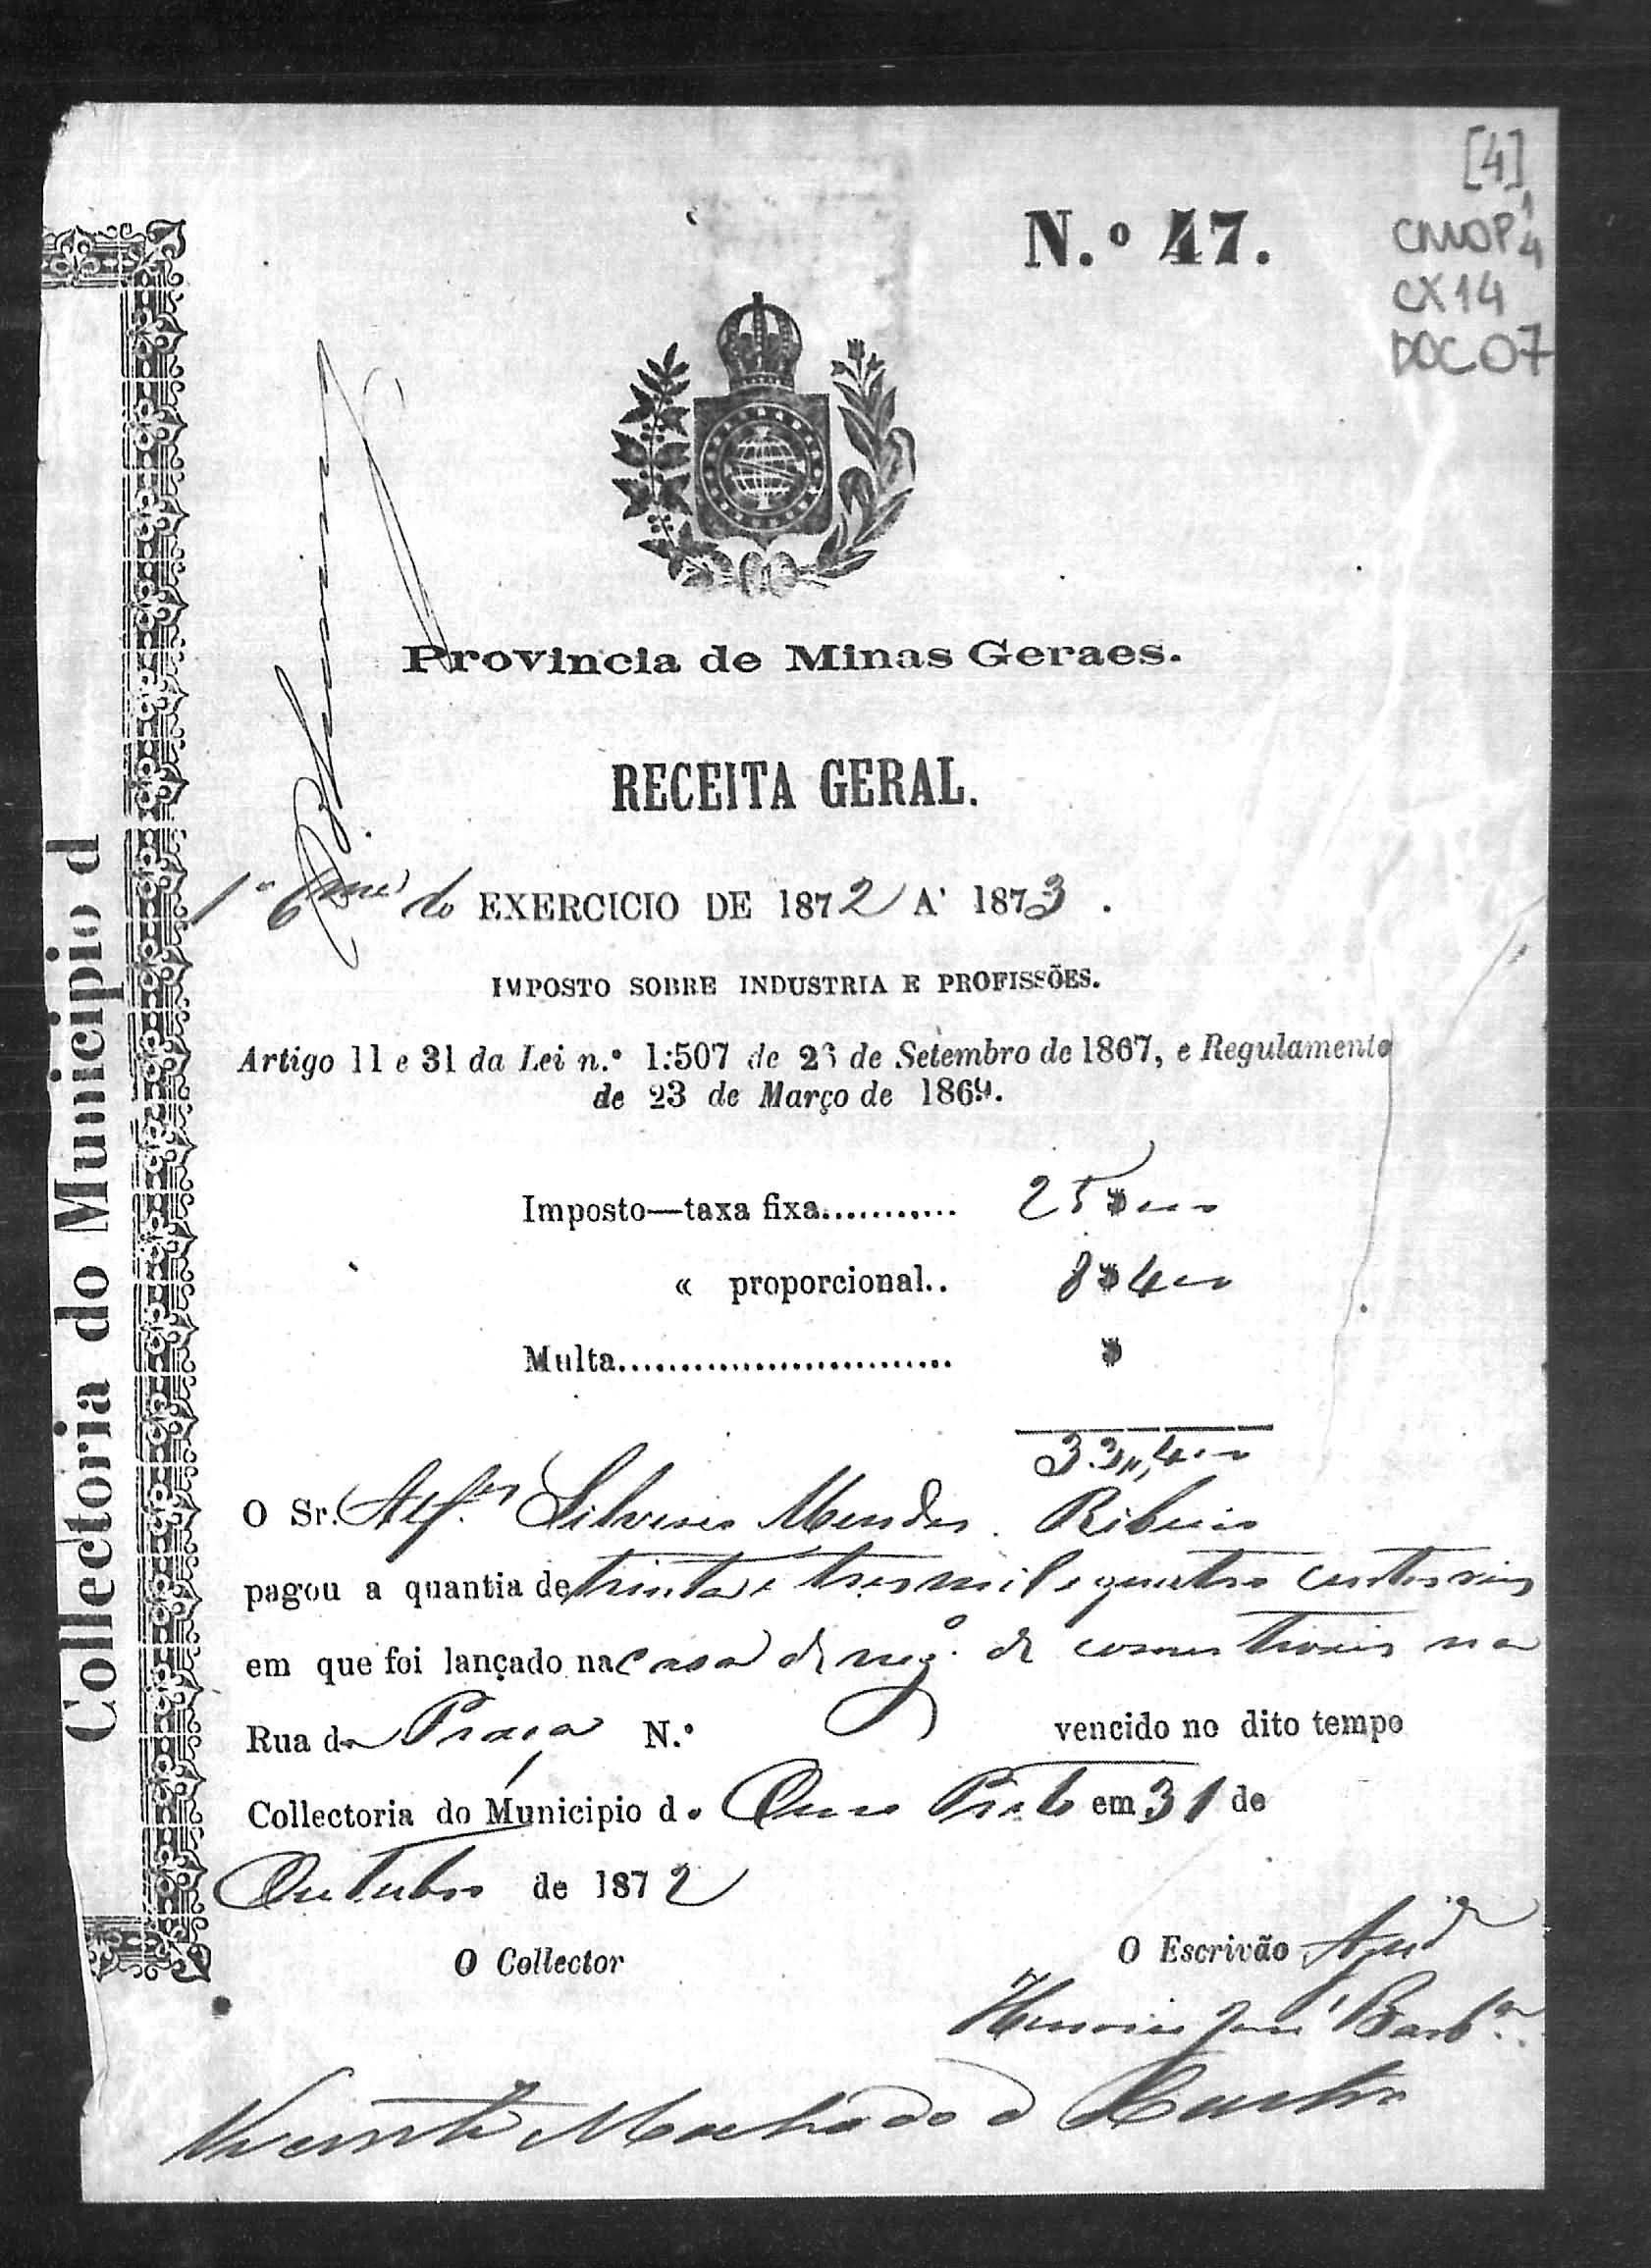 [4]
CMOP
CX14
DOC 07
N.º 47.
Provincia de Minas Geraes.
RECEITA GERAL.
1º do EXERCICIO DE 1872 A' 1873.
IMPOSTO SOBRE INDUSTRIA E PROFISSÕES.
Artigo 11 e 31 da Lei n.º 1:507 de 26 de Setembro de 1867, e Regulamento
de 23 de Março de 1869.
Imposto—taxa fixa............ 25$000
« proporcional.. 8$400
Multa........................... $
33,,400
O Sr. Alf.es Silverio Mendes Ribeiro
pagou a quantia de trinta e tres mil e quatro centos reis
em que foi lançado na casa de neg.º de comestiveis na
Rua da Praça N.º vencido no dito tempo
Collectoria do Municipio do Ouro Preto em 31 de
Outubro de 1872
O Collector
O Escrivão Ajud.e
José Barb.a
Vicente Machado de Castro
Collectoria do Municipio d